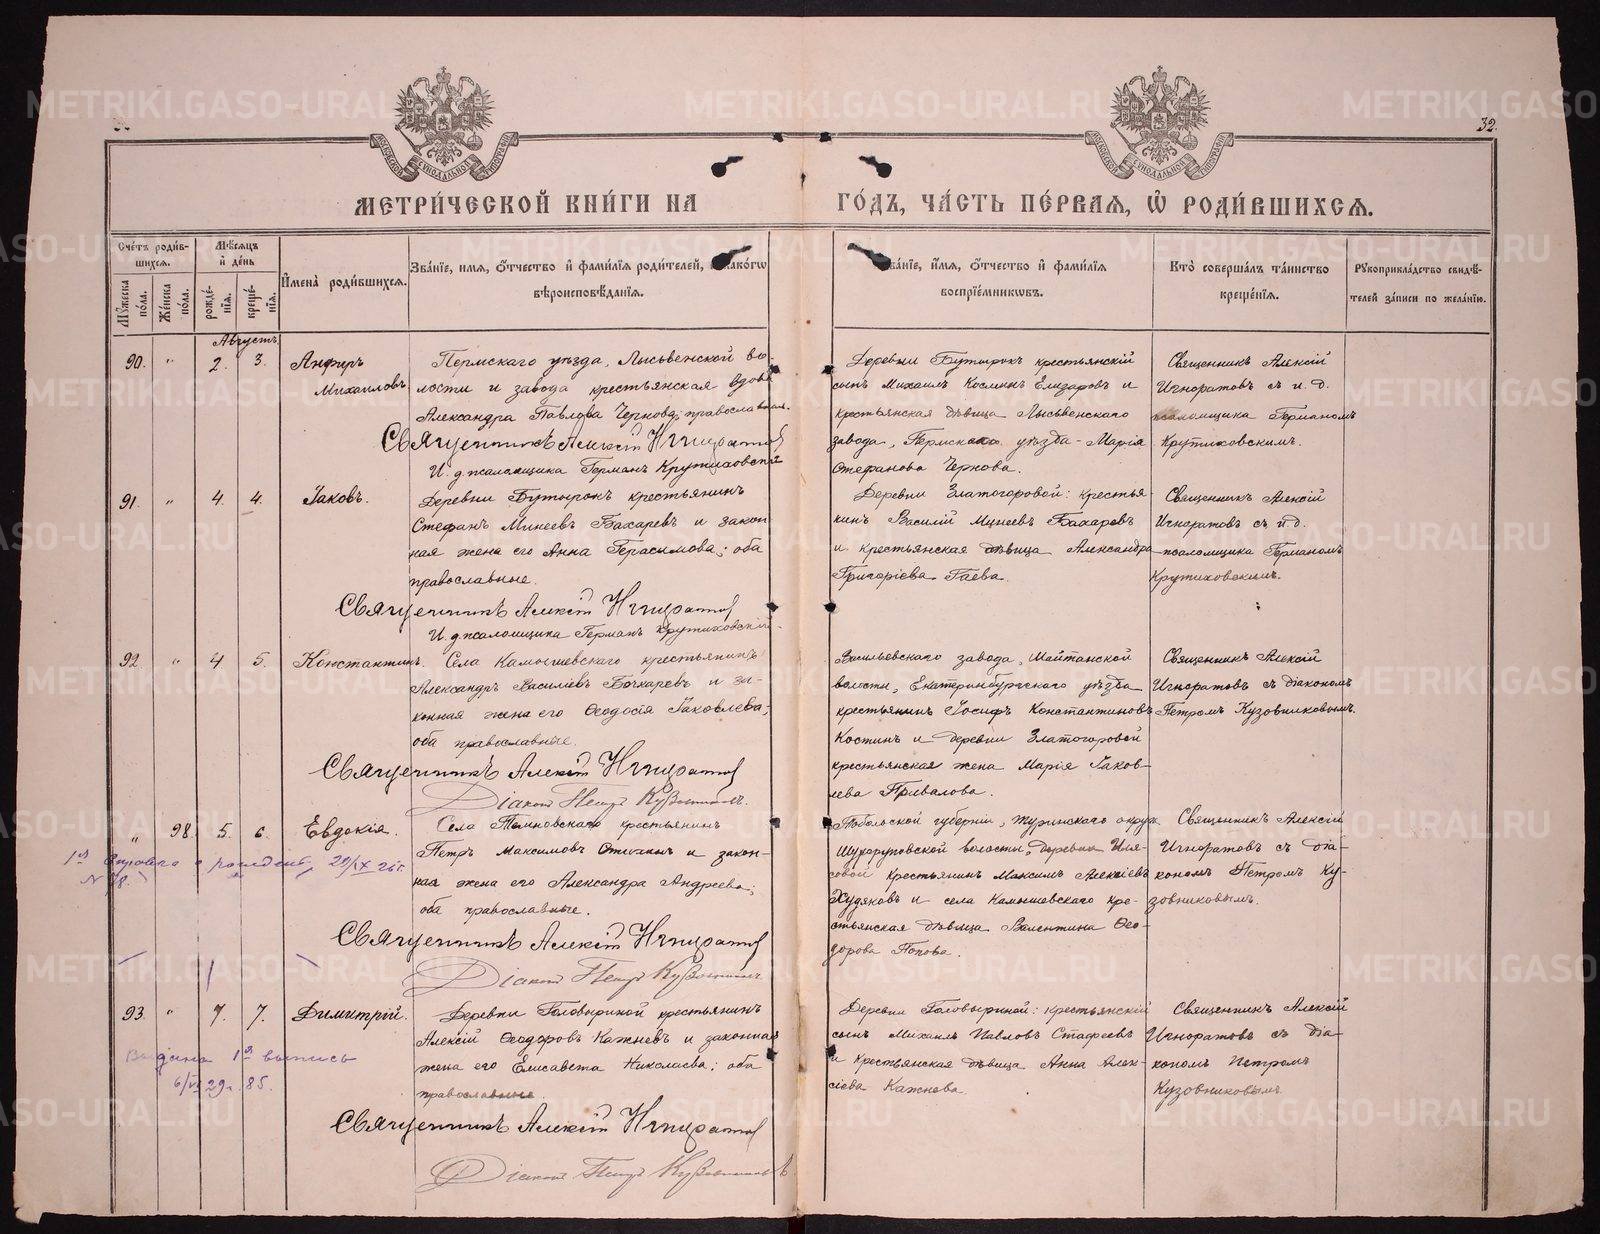 32.
МОСКОВСКОЙ СѴНОДАЛЬНОЙ ТИПОГРАФІИ
МОСКОВСКОЙ СѴНОДАЛЬНОЙ ТИПОГРАФІИ
МЕТРИ́ЧЕСКОЙ КНИ́ГИ НА ГО́ДЪ, ЧА́СТЬ ПЕ́РВАЯ, Ѡ РОДИ́ВШИХСЯ.
Сче́тъ роди́вшихся.
Му́жеска по́ла.
Же́нска по́ла.
Мѣ́сяцъ и҆ де́нь
рожде́нія.
креще́нія.
И҆мена̀ роди́вшихся.
Зва́ніе, и҆мя, о҆́тчество и҆ фами́лія роди́телей, и҆ како́гѡ
вѣроисповѣ́данія.
Зва́ніе, и҆́мя, о҆́тчество и҆ фами́лія
воспріе́мниковъ.
Кто̀ соверша́лъ та́инство
креще́нія.
Рꙋкоприкла́дство свидѣ́-
телей за́писи по жела́нію.
Августъ
90. " 2. 3. Анфиръ
Михаиловъ
Пермскаго уѣзда, Лысьвенской во-
лости и завода крестьянская вдова
Александра Павлова Чернова; православная.
Священникъ Алексій Игноратов
И. д. псаломщика Германъ Крутиховскій
Деревни Бутырокъ крестьянскій
сынъ Михаилъ Космикъ Елизаровъ и
крестьянская дѣвица Лысьвенскаго
завода, Пермскаго уѣзда - Марія
Стефанова Чернова.
Священникъ Алексій
Игноратовъ съ и. д.
псаломщика Германомъ
Крутиховскимъ.
91. " 4. 4. Іаковъ.
Деревни Бутырокъ крестьянинъ
Стефанъ Минеевъ Бахаревъ и закон
ная жена его Анна Герасимова; оба
православные.
Священникъ Алексій Игноратов
И. д. псаломщика Германъ Крутиховскій
Деревни Златогоровой: крестья-
нинъ Василій Минеевъ Бахаревъ
и крестьянская дѣвица Александра
Григоріева Гаева.
Священникъ Алексій
Игноратовъ съ и. д.
псаломщика Германомъ
Крутиховскимъ.
92. " 4. 5. Константинъ.
Села Камышевскаго крестьянинъ
Александръ Василіевъ Бочкаревъ и за-
конная жена его Ѳеодосія Іаковлева;
оба православные.
Священникъ Алексій Игноратов
Діаконъ Петръ Кузовников.
Васильевскаго завода, Шайтанской
волости, Екатеринбургскаго уѣзда
крестьянинъ Іосифъ Константиновъ
Костинъ и деревни Златогоровой
крестьянская жена Марія Іаков-
лева Привалова.
Священникъ Алексій
Игноратовъ съ діакономъ
Петромъ Кузовниковымъ.
" 98. 5. 6. Евдокія.
Села Темновскаго крестьянинъ
Петръ Максимовъ и закон-
ная жена его Александра Андреева;
оба православные.
Священникъ Алексій Игноратов
Діаконъ Петръ Кузовников.
Тобольской губерніи, Туринскаго округа
волости, деревни
крестьянинъ Максимъ Алексіевъ
Худяковъ и села Камышевскаго кре-
стьянская дѣвица Валентина Ѳео-
дорова Попова.
Священникъ Алексій
Игноратовъ съ діа-
кономъ Петромъ Ку-
зовниковымъ.
1я справка о рождении 29/IX 26 г.
93. " 7. 7. Димитрій.
Деревни Головыриной крестьянинъ
Алексій Ѳеодоровъ Кажневъ и законная
жена его Елисавета Николаева; оба
православные.
Священникъ Алексій Игноратов
Діаконъ Петръ Кузовников
Деревни Головыриной: крестьянскій
сынъ Михаилъ Павловъ Стафеевъ
и крестьянская дѣвица Анна Алек-
сіева Кажнева.
Священникъ Алексій
Игноратовъ съ діа-
кономъ Петромъ
Кузовниковымъ.
Выдана 1я выпись
6/VI 29 г. 85.
METRIKI.GASO-URAL.RU